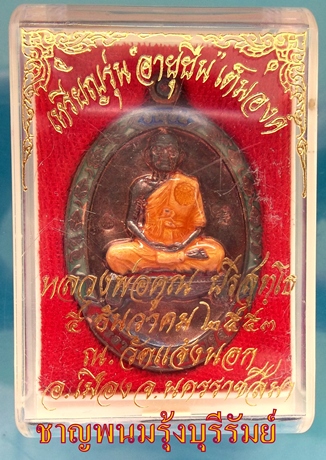 เหรียญรุ่น อายุยืน เต็มองค์
หลวงพ่อคูณ ปริสุทฺโธ
๕ ธันวาคม ๒๕๕๓
ณ วัดแจ้งนอก
อ.เมือง จ.นครราชสีมา
ชาญพนมรุ้งบุรีรัมย์